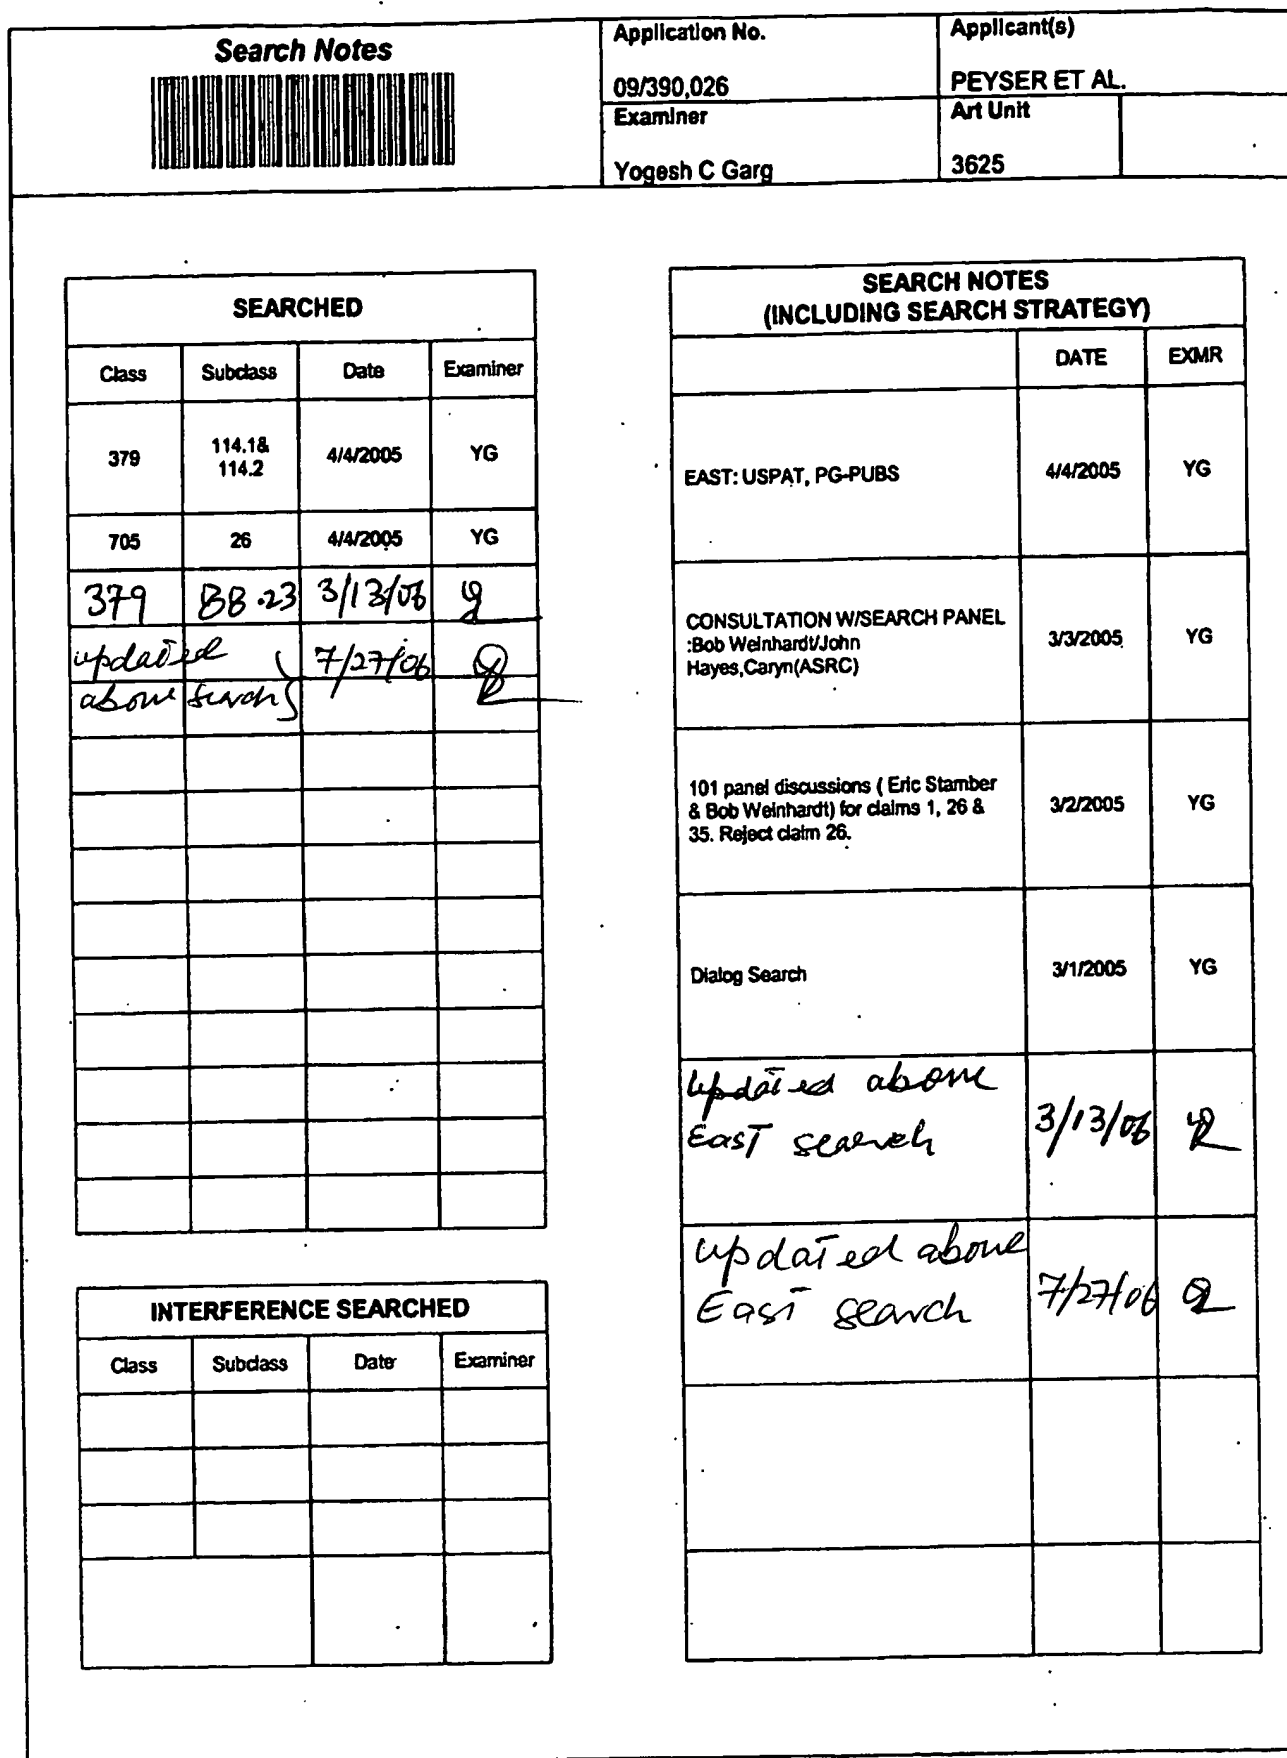 Search Notes
Application No.
09/390,026
Applicant(s)
PEYSER ET AL.
Examiner
Yogesh C Garg
Art Unit
3625
SEARCHED
Class Subclass Date Examiner
379 114.1& 114.2 4/4/2005 YG
705 26 4/4/2005 YG
379 88.23 3/13/06
updated 7/27/06
above search
INTERFERENCE SEARCHED
Class Subclass Date Examiner
SEARCH NOTES
(INCLUDING SEARCH STRATEGY)
DATE EXMR
EAST: USPAT, PG-PUBS 4/4/2005 YG
CONSULTATION W/SEARCH PANEL
:Bob Weinhardt/John 3/3/2005 YG
Hayes,Caryn(ASRC)
101 panel discussions ( Eric Stamber
& Bob Weinhardt) for claims 1, 26 & 3/2/2005 YG
35. Reject claim 26.
Dialog Search 3/1/2005 YG
updated above
East search 3/13/06
updated above
East search 7/27/06